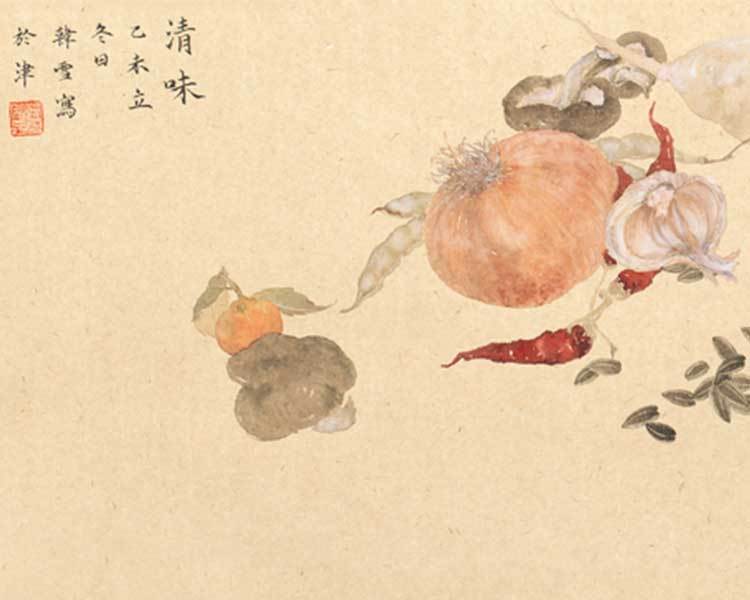 清味
乙未立
冬日
韓雪寫
於津